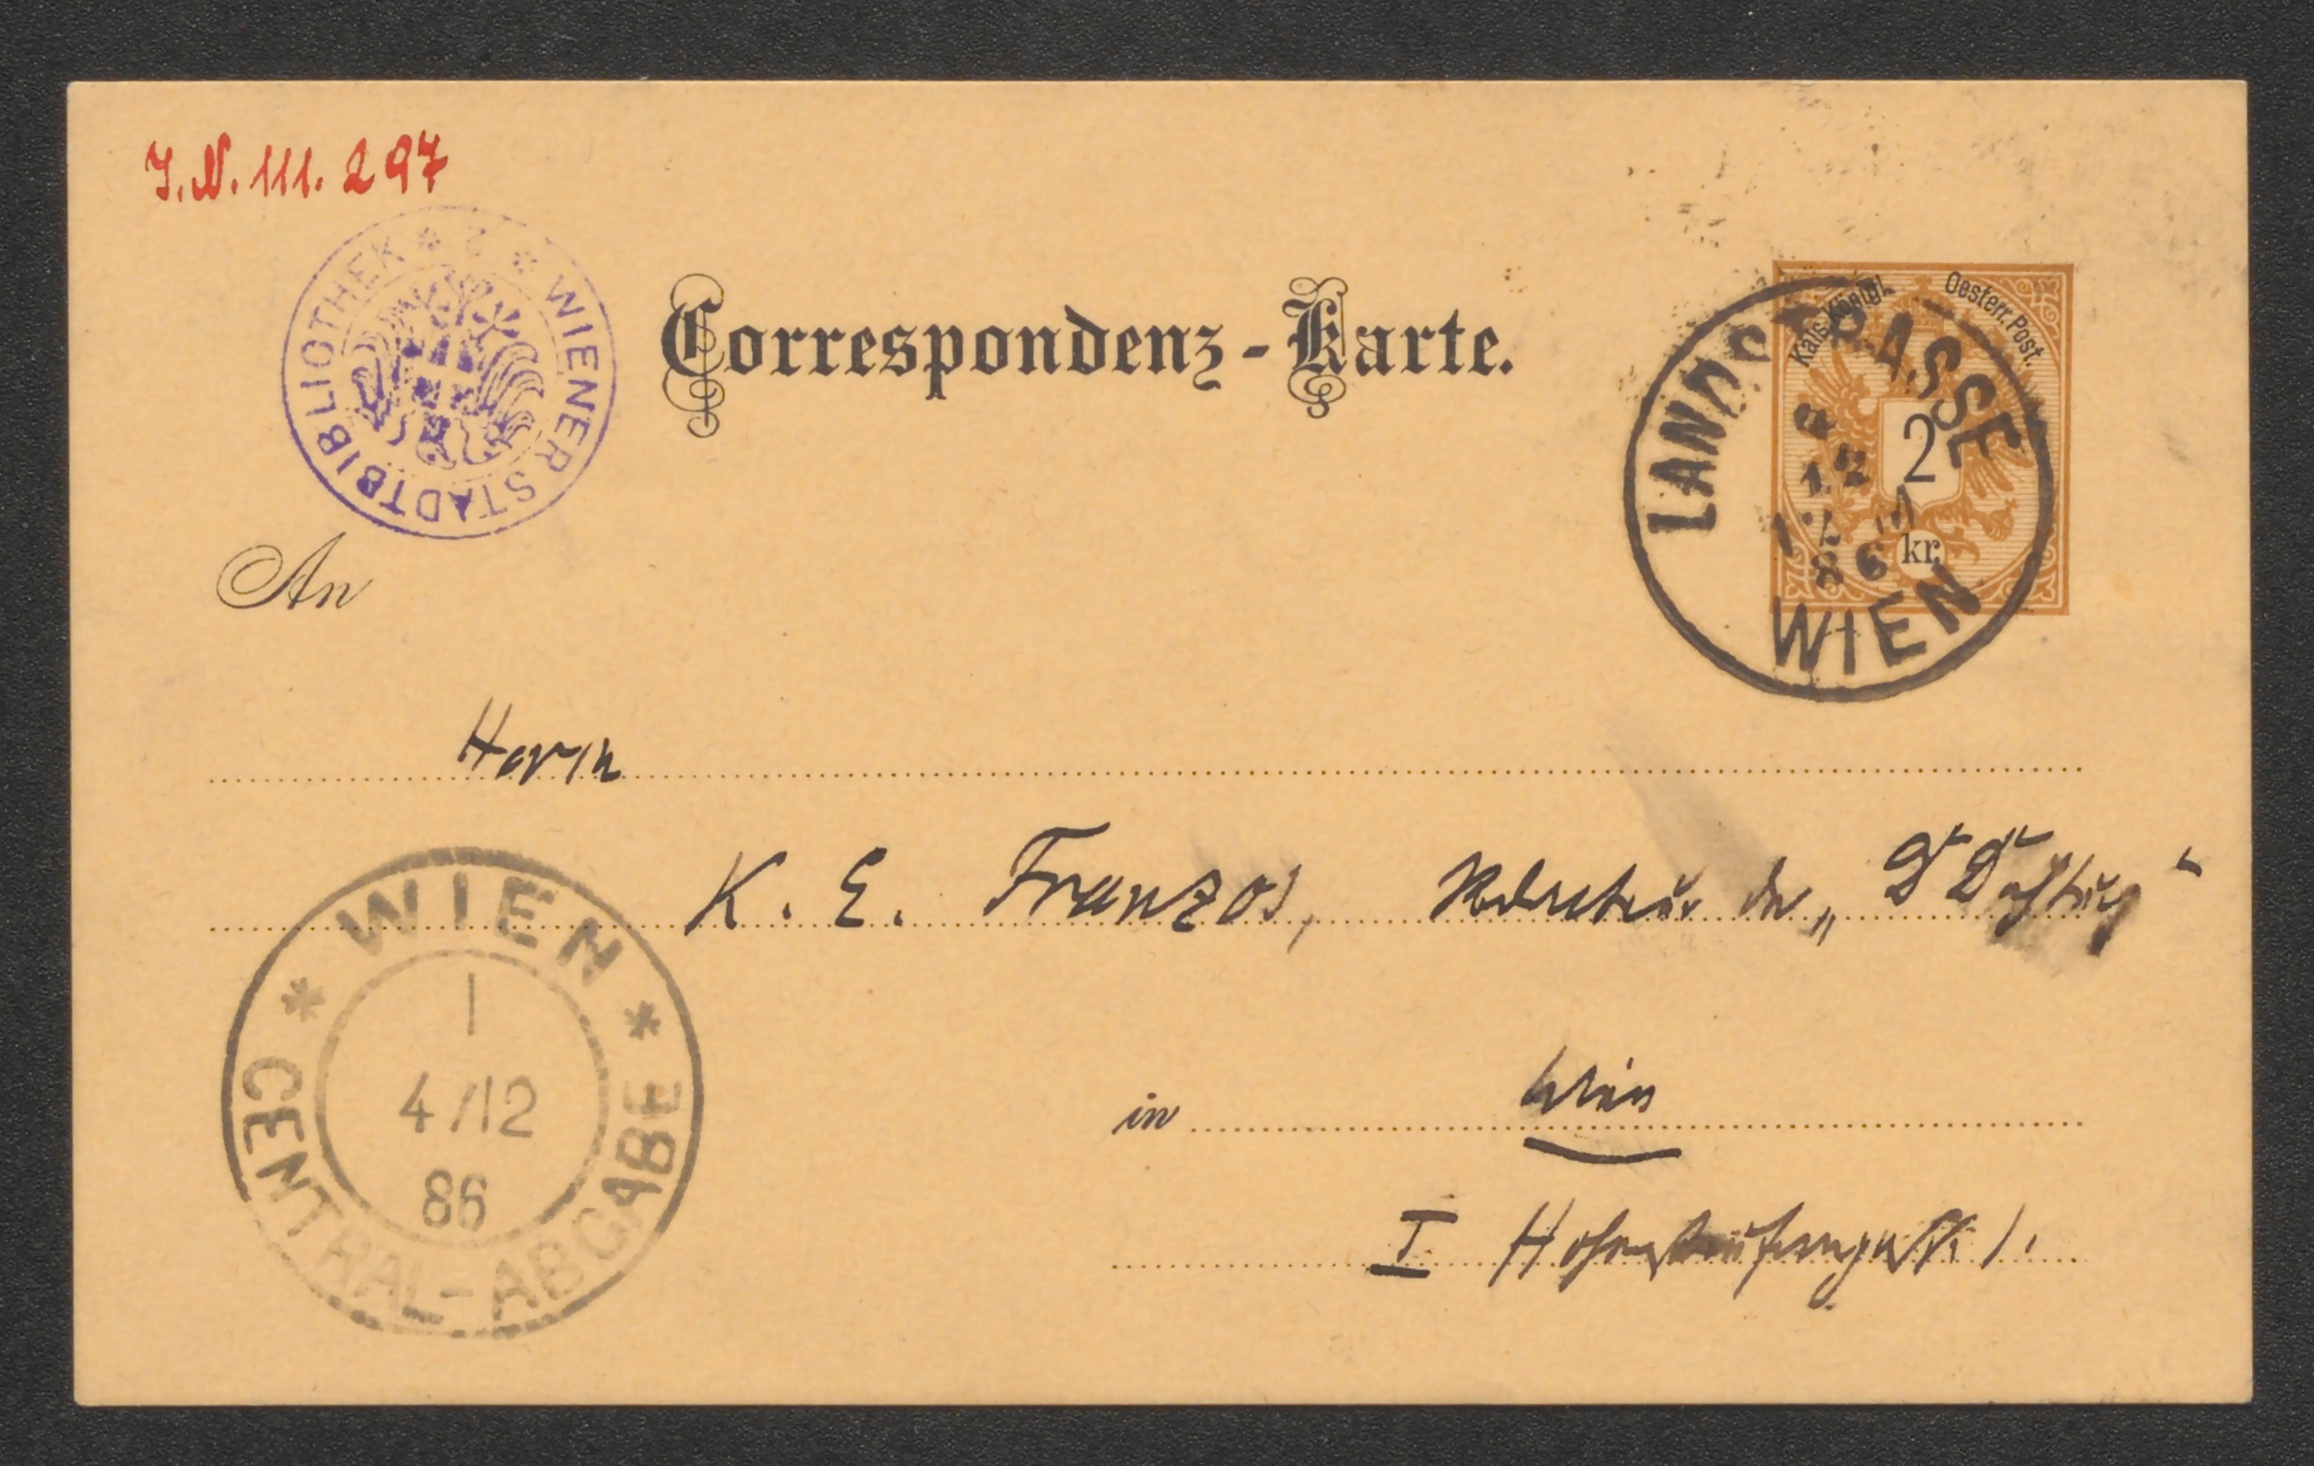 J.N. 111.297
WIENER STADTBIBLIOTHEK
Correspondenz-Karte.
Kais. Königl. Oesterr. Post.
2
kr.
LANDSTRASSE
12
86
WIEN
An
Herrn
K. E. Franzos, Redacteur der „Dt Dichtung“
in Wien
I Hohenstaufengasse 1.
WIEN
1
4/12
86
CENTRAL-ABGABE